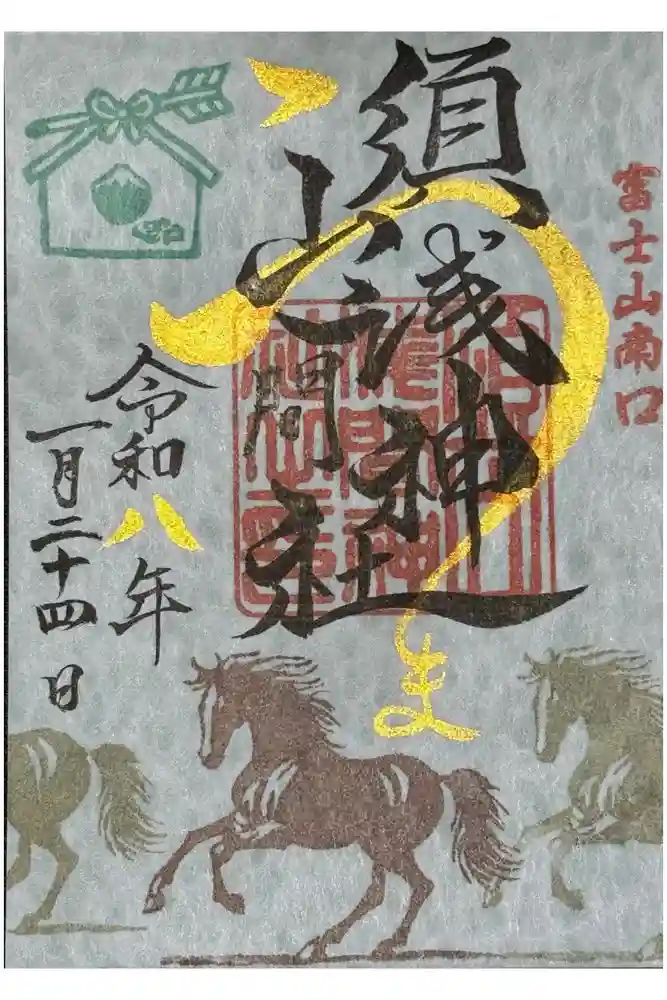 富士山南口
須山
浅間
神社
うま
令和八年
一月二十四日